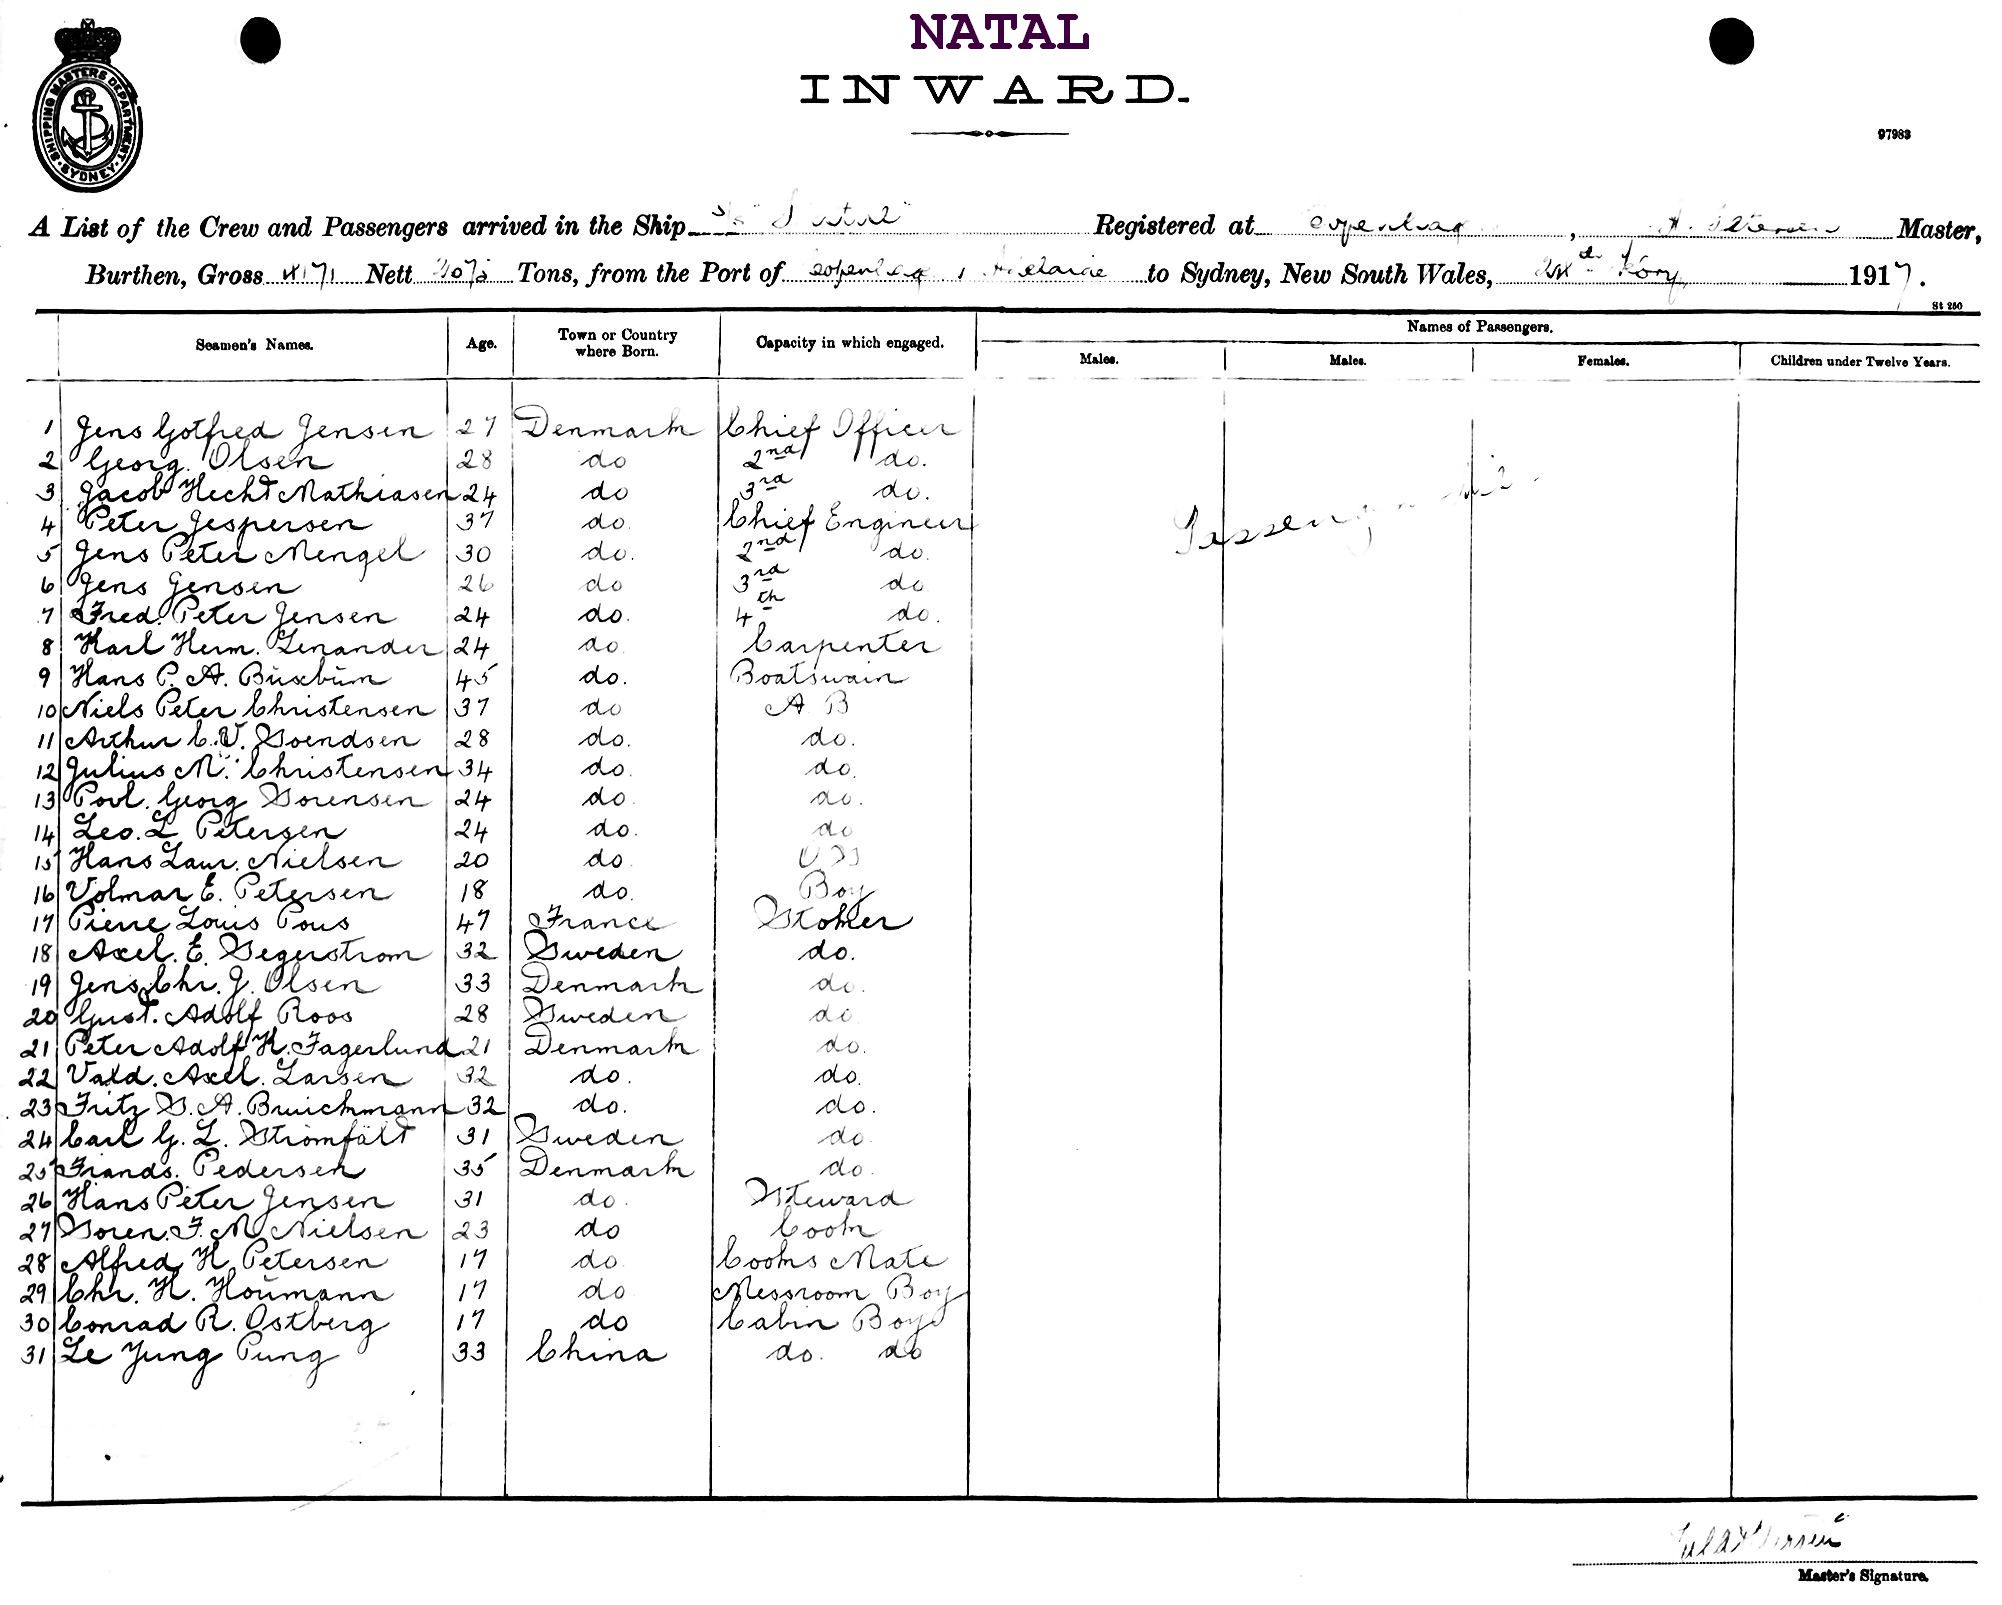 NATAL
INWARD.
97983
SHIPPING MASTERS DEPARTMENT SYDNEY
A List of the Crew and Passengers arrived in the Ship S/s " " Registered at Copenhag , A. Petersen Master,
Burthen, Gross 4171 Nett Tons, from the Port of Copenhag , Adelaide to Sydney, New South Wales, 1917.
St 250
Seamen's Names. Age. Town or Country where Born. Capacity in which engaged. Names of Passengers.
Males. Males. Females. Children under Twelve Years.
1 Jens Gotfred Jensen 27 Denmark Chief Officer
2 Georg. Olsen 28 do 2nd do.
3 Jacob Hecht Mathiasen 24 do 3rd do.
4 Peter Jespersen 37 do. Chief Engineer
5 Jens Peter Mengel 30 do. 2nd do.
6 Jens Jensen 26 do 3rd do
7 Fred. Peter Jensen 24 do. 4th do.
8 Karl Herm. Lenander 24 do Carpenter
9 Hans P. A. Buxbum 45 do. Boatswain
10 Niels Peter Christensen 37 do A B
11 Arthur C. V. Soendsen 28 do. do.
12 Julius M. Christensen 34 do. do.
13 Povl. Georg Sorensen 24 do. do.
14 Leo. L Petersen 24 do. do
15 Hans Laur. Nielsen 20 do.
16 Volmar E. Petersen 18 do. Boy
17 Pierre Louis Pous 47 France Stoker
18 Axel. E. Segerstrom 32 Sweden do.
19 Jens Chr. J. Olsen 33 Denmark do.
20 Gust. Adolf Roos 28 Sweden do
21 Peter Adolf K. Fagerlund 21 Denmark do.
22 Vald. Axel. Larsen 32 do. do.
23 Fritz S. A. Bruickmann 32 do. do.
24 Carl G. L. Stromfält 31 Sweden do.
25 Frands. Pedersen 35 Denmark do.
26 Hans Peter Jensen 31 do. Steward
27 Soren. F. M. Nielsen 23 do Cook
28 Alfred H. Petersen 17 do. Cooks Mate
29 Chr. H. Houmann 17 do Messroom Boy
30 Conrad R. Ostberg 17 do Cabin Boy
31 Le Yung Pung 33 China do. do
Master's Signature.